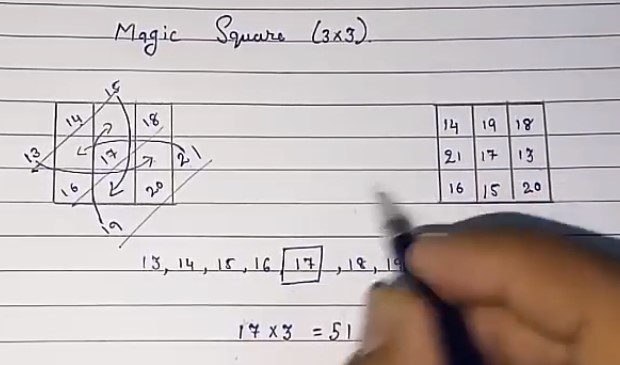 Magic Square (3x3)
15
14 18
13 17 21
16 20
19
14 19 18
21 17 13
16 15 20
13, 14, 15, 16 17 , 18, 19
17 x 3 = 51